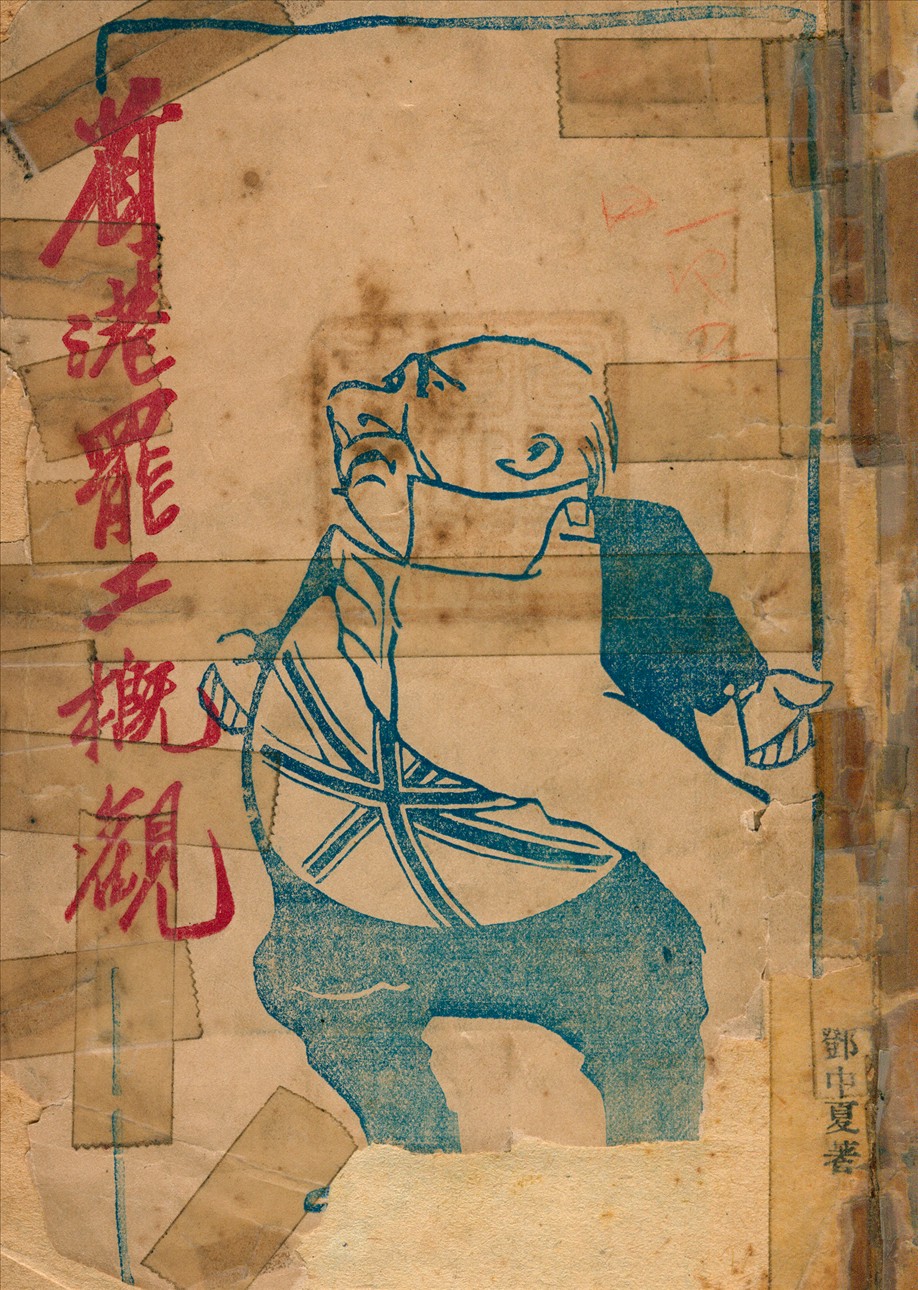 省港罷工概觀
鄧中夏著